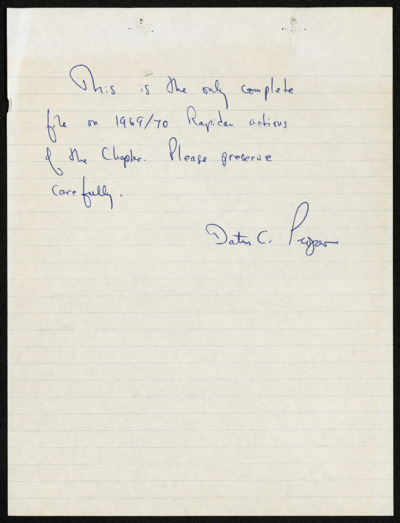 This is the only complete
file on 1969/70 Rapidan actions
of the Chapter. Please preserve
carefully.
Datus C. Proper